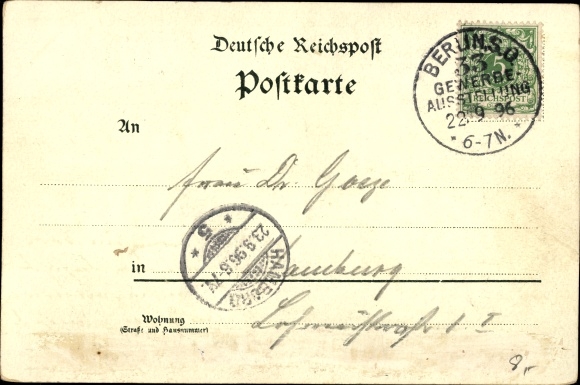 Deutsche Reichspost
Postkarte
BERLIN S.O.
33
GEWERBE-
AUSSTELLUNG
22.9 96
* 6-7N. *
5
REICHSPOST
An
Frau Dr. Goeze
* 5 *
23.9.96.
HAMBURG
in Hamburg
Wohnung
(Straße und Hausnummer)
I
8,-